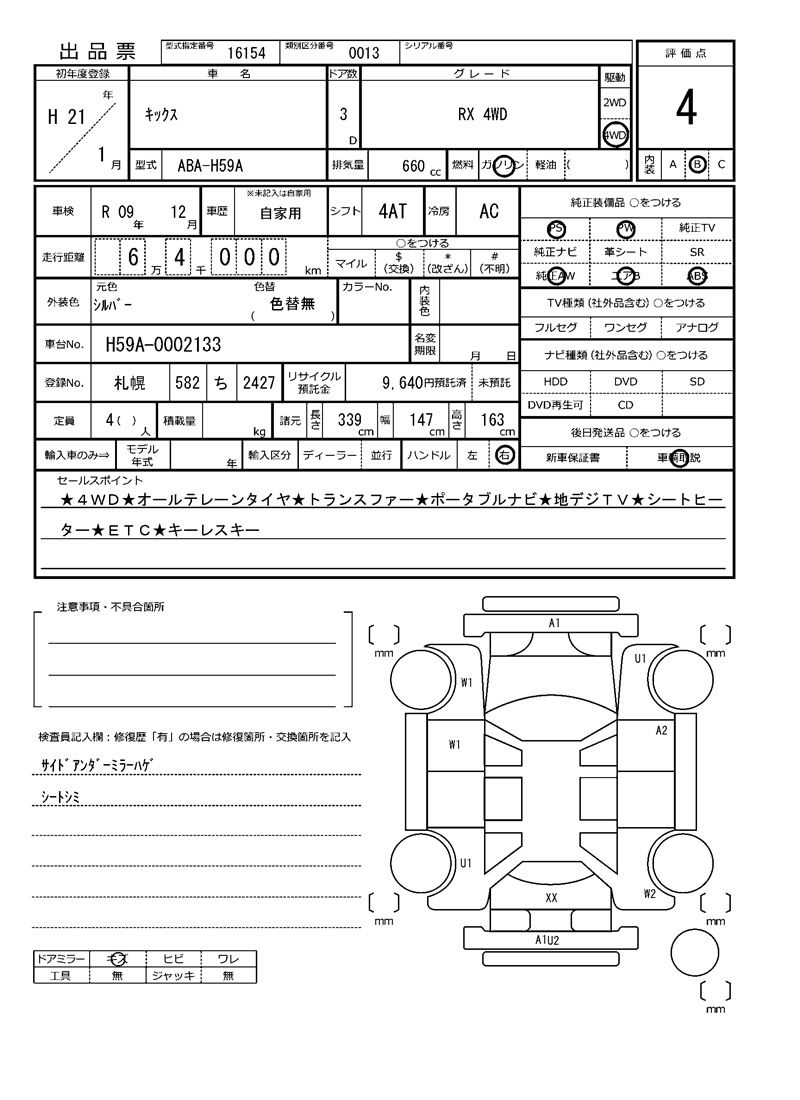 出品票 型式指定番号 16154 類別区分番号 0013 シリアル番号
評価点
初年度登録 車名 ドア数 グレード 駆動
H 21 年 1 月 キックス 3 D RX 4WD 2WD 4WD
4
型式 ABA-H59A 排気量 660 cc 燃料 ガソリン 軽油 ( )
内装 A B C
車検 R 09 年 12 月 車歴 ※未記入は自家用 自家用 シフト 4AT 冷房 AC
純正装備品 ○をつける
PS PW 純正TV
走行距離 6 万 4 千 0 0 0 km ○をつける
マイル $ (交換) * (改ざん) # (不明)
純正ナビ 革シート SR
純正AW エアB ABS
外装色 元色 シルバー 色替 ( 色替無 ) カラーNo. 内装色
TV種類 (社外品含む) ○をつける
フルセグ ワンセグ アナログ
車台No. H59A-0002133 名変期限 月 日
ナビ種類 (社外品含む) ○をつける
HDD DVD SD
DVD再生可 CD
登録No. 札幌 582 ち 2427 リサイクル預託金 9,640円預託済 未預託
定員 4 ( ) 人 積載量 kg 諸元 長さ 339 cm 幅 147 cm 高さ 163 cm
後日発送品 ○をつける
新車保証書 車輌取説
輸入車のみ⇒ モデル年式 年 輸入区分 ディーラー 並行 ハンドル 左 右
セールスポイント
★4WD★オールテレーンタイヤ★トランスファー★ポータブルナビ★地デジTV★シートヒー
ター★ETC★キーレスキー
注意事項・不具合箇所
検査員記入欄:修復歴「有」の場合は修復箇所・交換箇所を記入
サイドアンダーミラーハゲ
シートシミ
ドアミラー キズ ヒビ ワレ
工具 無 ジャッキ 無
A1
mm
mm
U1
W1
A2
W1
U1
W2
XX
mm
mm
A1U2
mm